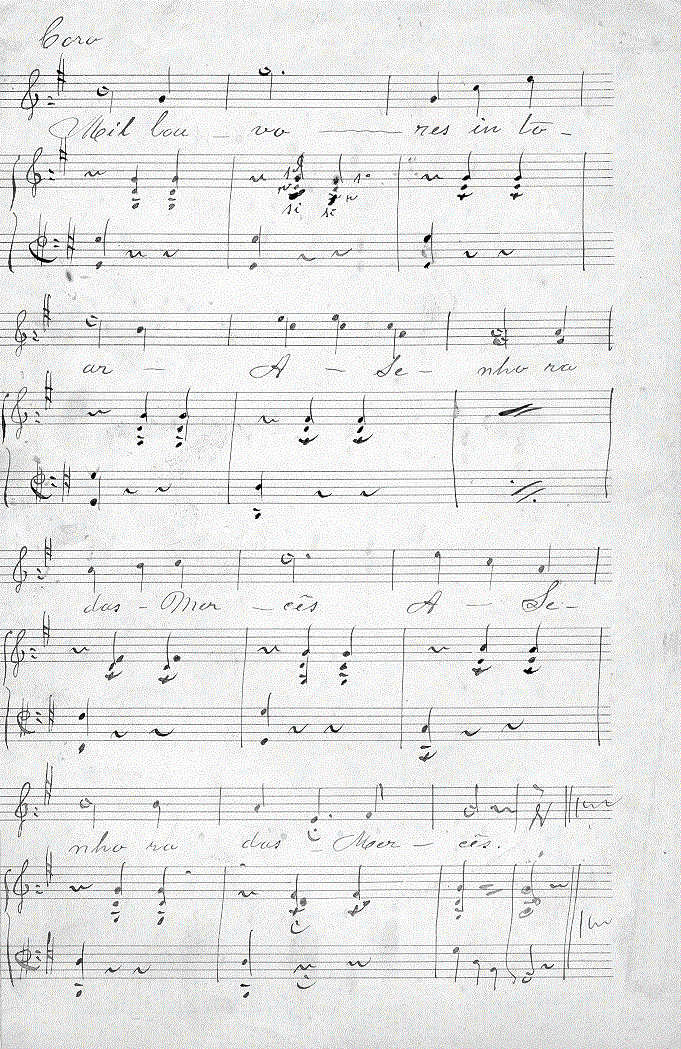 Coro
Mil lou - vo - res in to -
ar - A - Se - nho ra
das - Mer - cês A - Se -
nho ra das - Mer - cês.